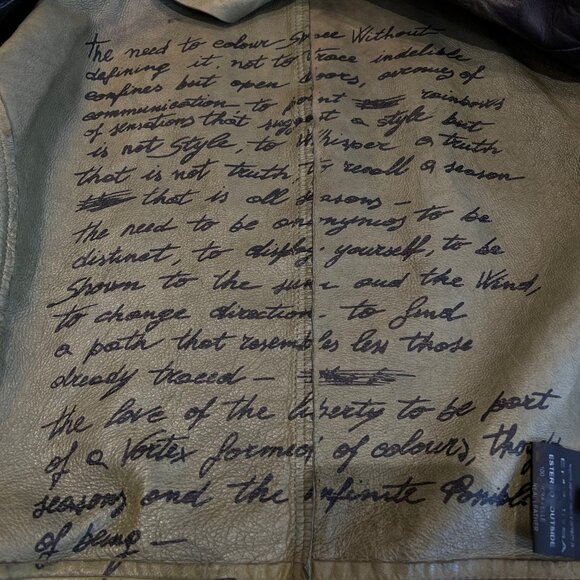 the need to colour Space Without
defining it, not to trace indelible
confines but open doors, avenues of
communication to paint rainbows
of sensations that suggest a style but
is not Style, to Whisper a truth
that is not truth to recall a season
that is all seasons -
the need to be anonymios to be
distinct, to display yourself, to be
Shown to the sun and the Wind,
to change direction to find
a path that resembles less those
already traced -
the love of the liberty to be part
of a Vortex formed of colours,
seasons and the infinite Possibi
of being -
ESTERNO OUTSIDE